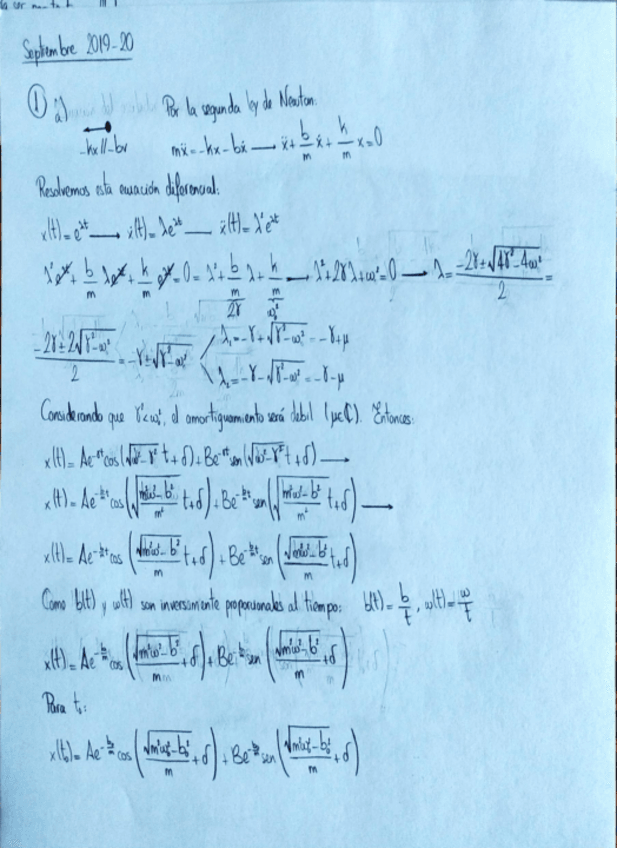 Septiembre 2019-20
① a) Por la segunda ley de Newton:
-kx // -bv mẍ = -kx - bẋ → ẍ + b/m ẋ + k/m x = 0
Resolvemos esta ecuación diferencial:
x(t) = e^λt → ẋ(t) = λe^λt → ẍ(t) = λ²e^λt
λ²e^λt + b/m λe^λt + k/m e^λt = 0 = λ² + b/m λ + k/m → λ² + 2γλ + ω₀² = 0 → λ = (-2γ ± √(4γ² - 4ω₀²))/2 =
2γ ω₀²
(-2γ ± 2√(γ² - ω₀²))/2 = -γ ± √(γ² - ω₀²) λ₁ = -γ + √(γ² - ω₀²) = -γ + μ
λ₂ = -γ - √(γ² - ω₀²) = -γ - μ
Considerando que γ² < ω₀², el amortiguamiento será debil (μ∈ℂ). Entonces:
x(t) = Ae^-γt cos(√(ω² - γ²) t + δ) + Be^-γt sen(√(ω² - γ²) t + δ) →
x(t) = Ae^-b/m t cos(√((m²ω² - b²)/m²) t + δ) + Be^-b/m t sen(√((m²ω² - b²)/m²) t + δ) →
x(t) = Ae^-b/m t cos(√(m²ω² - b²)/m t + δ) + Be^-b/m t sen(√(m²ω² - b²)/m t + δ)
Como b(t) y ω(t) son inversamente proporcionales al tiempo: b(t) = b/t, ω(t) = ω/t
x(t) = Ae^-b/m cos(√(m²ω² - b²)/m + δ) + Be^-b/m sen(√(m²ω² - b²)/m + δ)
Para t₀:
x(t₀) = Ae^-b₀/m cos(√(m²ω₀² - b₀²)/m + δ) + Be^-b₀/m sen(√(m²ω₀² - b₀²)/m + δ)